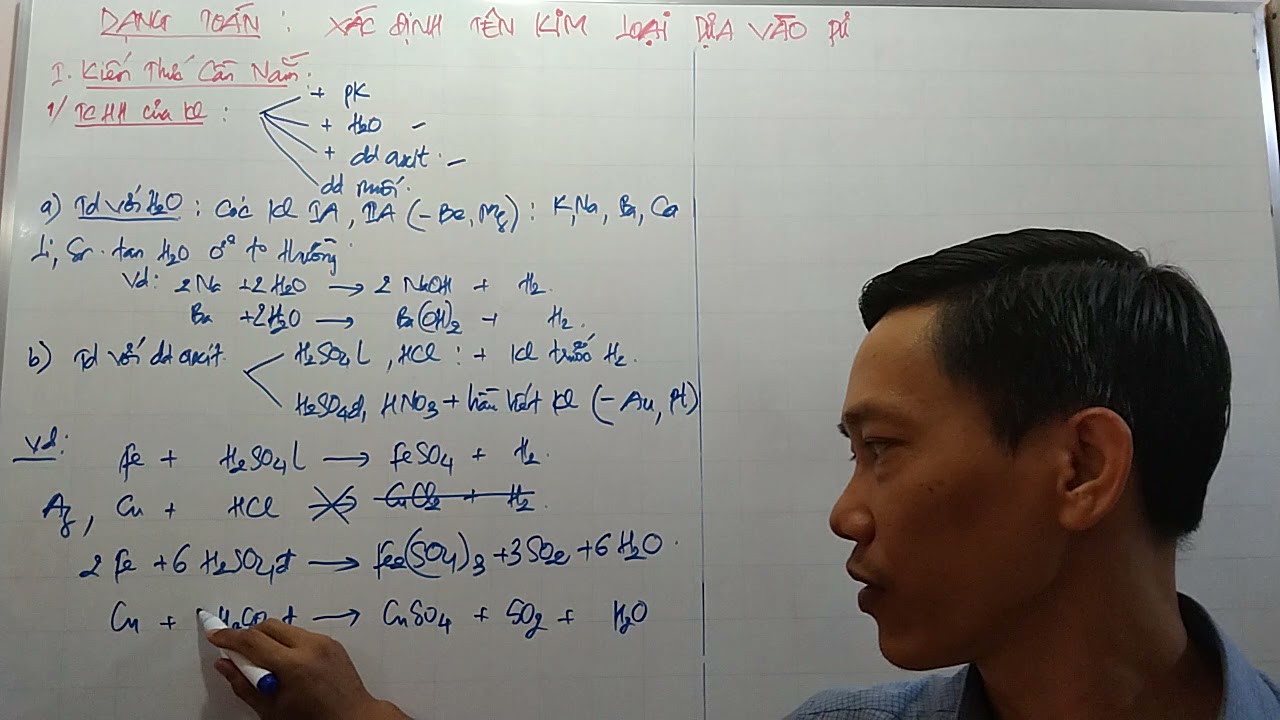 DẠNG TOÁN : XÁC ĐỊNH TÊN KIM LOẠI DỰA VÀO PỨ
I. Kiến Thức Cần Nắm:
1/ TCHH của kl :
+ PK
+ H2O -
+ dd axit. -
dd muối.
a) Td với H2O : Các kl IA, IIA (-Be, Mg) : K, Na, Ba, Ca
Li, Sr. tan H2O ở to thường
Vd: 2Na + 2H2O → 2NaOH + H2.
Ba + 2H2O → Ba(OH)2 + H2.
b) Td với dd axit.
H2SO4 l, HCl : + kl trước H2.
H2SO4 đ, HNO3 + hầu hết kl (-Au, Pt)
Vd:
Fe + H2SO4 l → FeSO4 + H2.
Ag, Cu + HCl → CuCl2 + H2.
2Fe + 6H2SO4 đ → Fe2(SO4)3 + 3SO2 + 6H2O.
Cu + đ → CuSO4 + SO2 + H2O